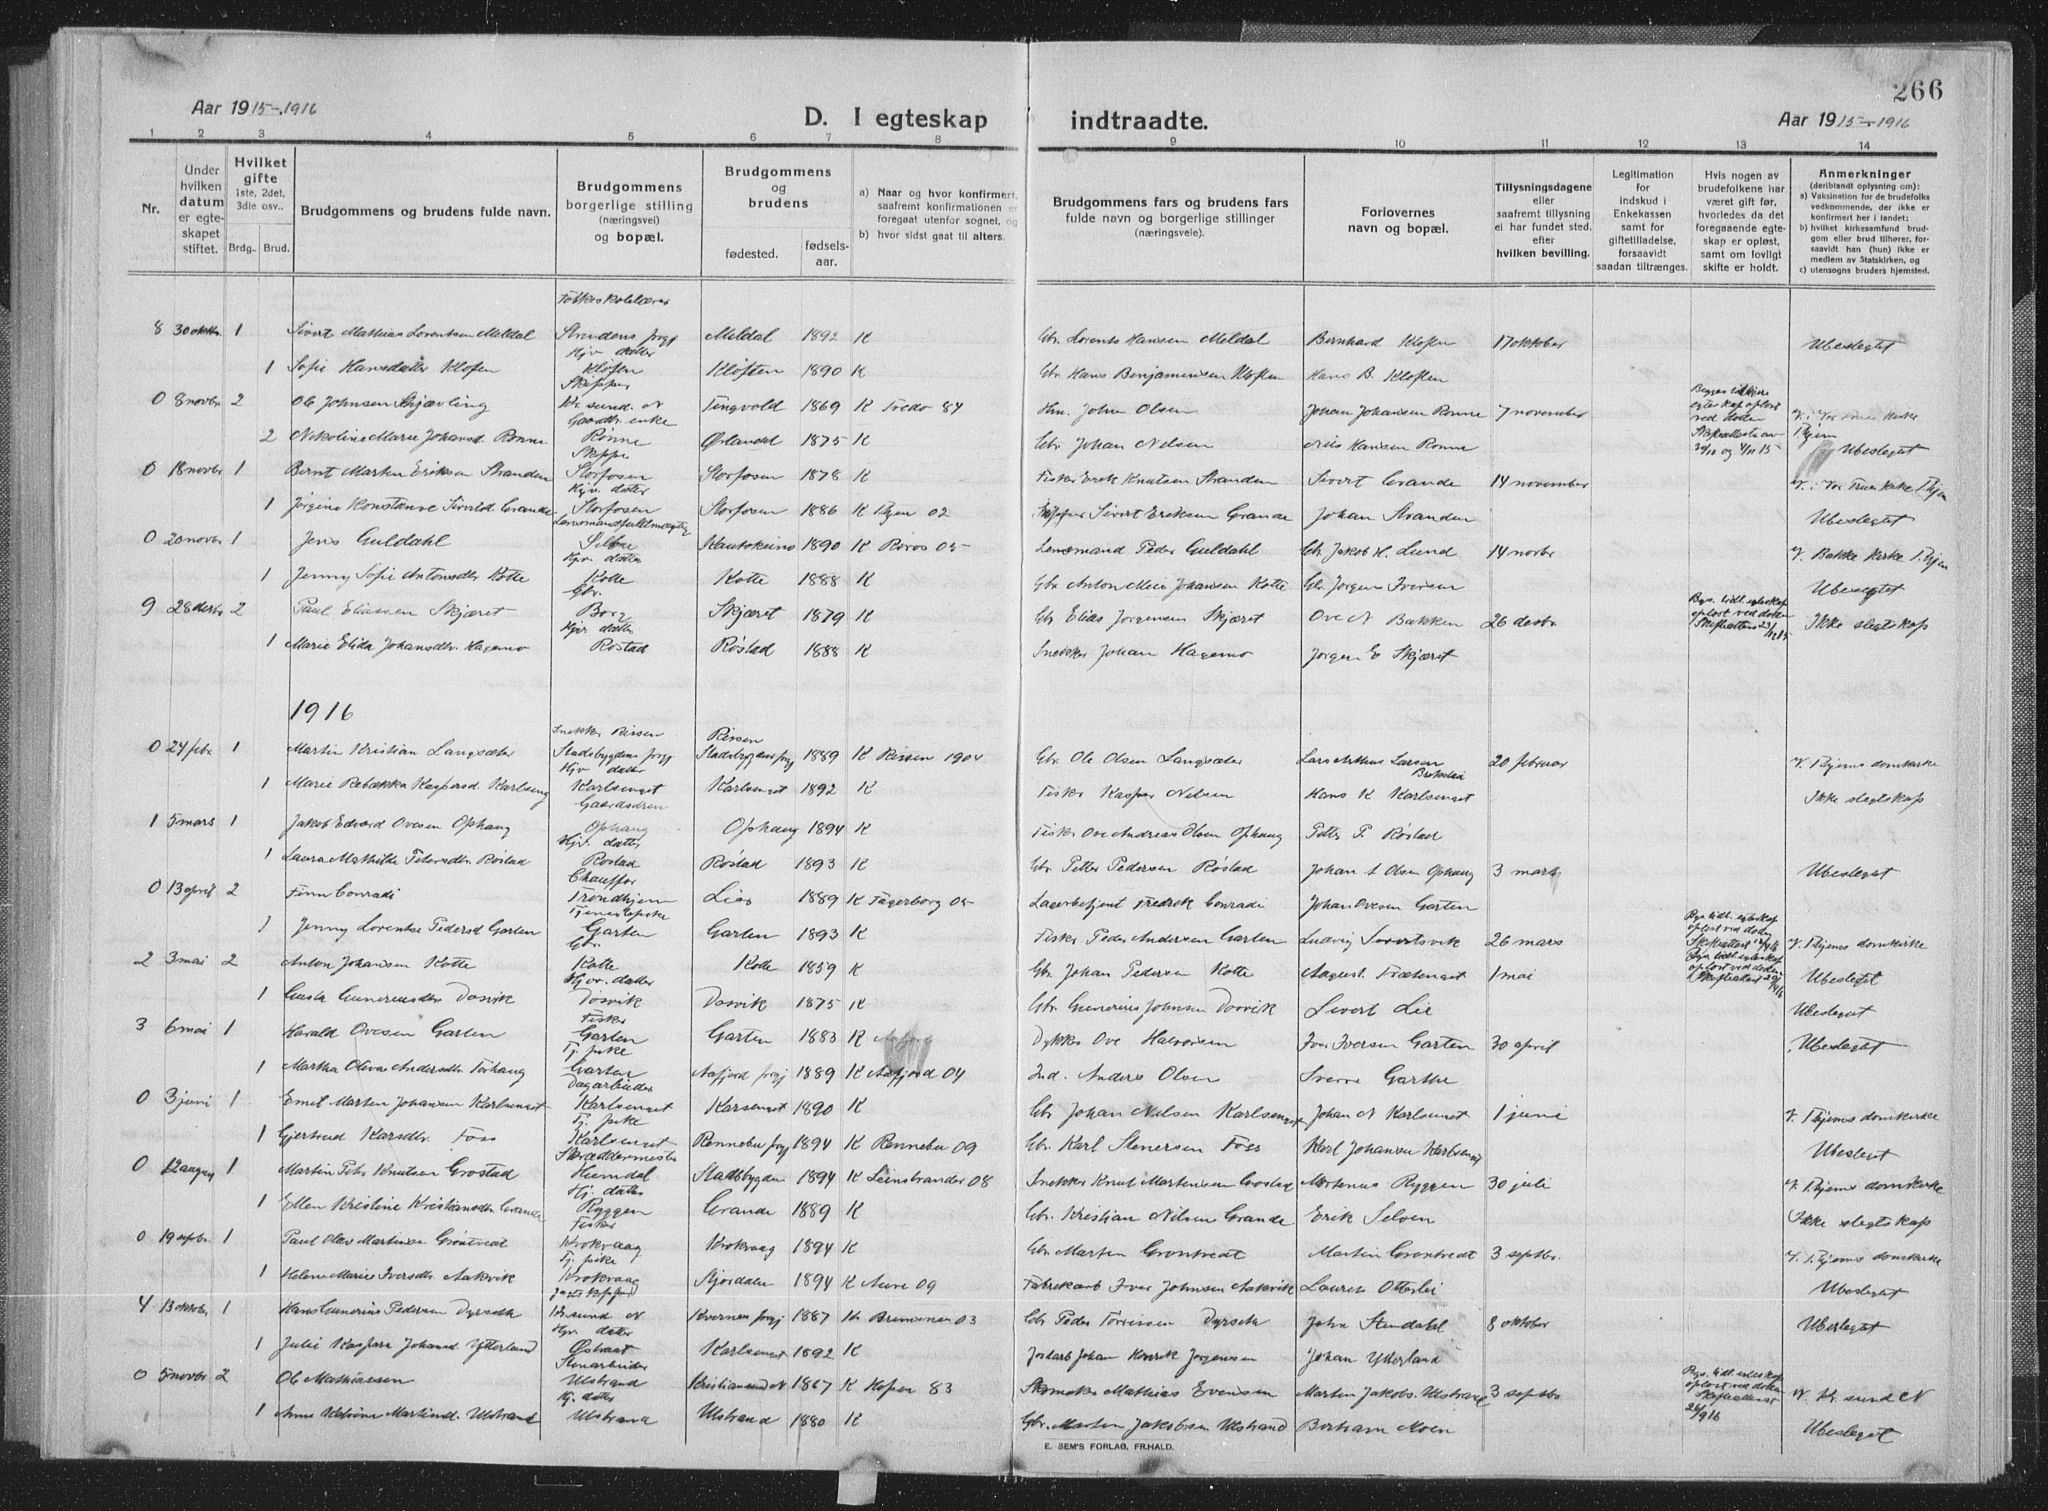 266
Aar 1915-1916
D. I egteskap indtraadte.
Aar 1915-1916
1 2 3 4 5 6 7 8 9 10 11 12 13 14
Nr.
Under hvilken datum er egteskapet stiftet.
Hvilket gifte 1ste, 2det, 3die osv..
Brdg.. Brud.
Brudgommens og brudens fulde navn.
Brudgommens borgerlige stilling (næringsvei) og bopæl.
Brudgommens og brudens
fødested. fødsels-aar.
a) Naar og hvor konfirmert, saafremt konfirmationen er foregaat utenfor sognet, og
b) hvor sidst gaat til alters.
Brudgommens fars og brudens fars fulde navn og borgerlige stillinger (næringsveie).
Forlovernes navn og bopæl.
Tillysningsdagene eller saafremt tillysning ei har fundet sted, efter hvilken bevilling.
Legitimation for indskud i Enkekassen samt for giftetilladelse, forsaavidt saadan tiltrænges.
Hvis nogen av brudefolkene har været gift før, hvorledes da det foregaaende egteskap er opløst, samt om lovligt skifte er holdt.
Anmerkninger (deriblandt oplysning om):
a) Vaksination for de brudefolks vedkommende, der ikke er konfirmert her i landet;
b) hvilket kirkesamfund brudgom eller brud tilhører, forsaavidt han (hun) ikke er medlem av Statskirken, og
c) utensogns bruders hjemsted.
8 30 oktbr 1 Sivert Mathias Lorentsen Meldal Folkeskolelærer Meldal 1892 K Gbr. Lorents Hansen Meldal Bernhard Kloften 17 oktober Ubeslegtet
1 Sofie Hansdatter Kloften Gbr. datter Kloften Kloften 1890 K Gbr Hans Benjaminsen Kloften Hans B. Kloften
0 8 novbr 2 Ole Johnsen Skjævling Skipper Kr. sund. N Tingvold 1869 K Fredø 84 Hm. John Olsen Johan Johansen Rønne 7 november V. i Vor Frues kirke Thjem
2 Nikoline Marie Johansd. Rønne Gaardbr. enke Rønne Ørlandet 1875 K Gbr Johan Nelsen Nils Hansen Rønne Ubeslegtet
0 18 novbr 1 Bernt Martin Eriksen Stranden Skipper Storfosen Storfosen 1878 K Fisker Erik Knutsen Stranden Sivert Grande 14 november V. i Vor Frues kirke Thjem
1 Jørgine Konstanse Sivertd. Grande Gbr. datter Storfosen Storfosen 1886 K Thjem 02 Skipper Sivert Eriksen Grande Johan Stranden Ubeslegtet
0 20 novbr 1 Jens Guldahl Lensmandsfuldmægtig Selbu Kautokeino 1890 K Røros 05 Lensmand Peder Guldahl Gbr Jakob H. Lund 14 novbr V. Bakke kirke Thjem
1 Jenny Sofie Antonsdtr Kotte Gbr. datter Kotte Kotte 1888 K Gbr Anton Meier Johansen Kotte Gbr. Jørgen Iversen Ubeslegtet
9 28 desbr 2 Paul Eliassen Skjæret Gbr. Borg Skjæret 1879 K Gbr Elias Jørgensen Skjæret Ove N Bakken 26 desbr Ikke slegtskap
1 Marie Elida Johansdtr. Hagemo Gbr. datter Røstad Røstad 1888 K Snekker Johan Hagemo Jørgen E Skjæret
1916
0 24 febr 1 Martin Kristian Langsæter Snekker Rissen Stadsbygdens prgj Rissen Stadsbygdens prgj 1889 K Rissen 1904 Gbr Ole Olsen Langsæter Lars Arthur Larsen 20 februar V. Thjems domkirke
1 Marie Rebekka Kaspersd. Karlseng Gbr. datter Karlsenget Karlsenget 1892 K Fisker Kasper Nelsen Hans K Karlsenget Ikke slegtskap
1 5 mars 1 Jakob Edvard Ovesen Ophaug Gaardsdreng Ophaug Ophaug 1894 K Fisker Ove Andreas Olsen Ophaug Petter P. Røstad
1 Laura Mathilde Petersdtr. Røstad Gbr. datter Røstad Røstad 1893 K Gbr Petter Pedersen Røstad Johan A Olsen Ophaug 3 mars Ubeslegtet
0 13 april 2 Finn Conradi Chauffør Trondhjem Lier 1889 K Fagerborg 05 Lagerbetjent Fredrik Conradi Johan Ovesen Garten
1 Jenny Lorentse Pedersd Garten Tjenestepike Garten Garten 1893 K Fisker Peder Andersen Garten Ludvig Sivertsvik 26 mars V. Thjems domkirke
2 3 mai 2 Anton Johansen Kotte Gbr. Kotte Kotte 1859 K Gbr. Johan Pedersen Kotte August Fratenget 1 mai Ubeslegtet
1 Gusta Gunnerusdtr Dosvik Gbr. datter Dosvik Dosvik 1875 K Gbr. Gunerius Johnsen Dosvik Sivert Lie Ubeslegtet
3 6 mai 1 Harald Ovesen Garten Fisker Garten Garten 1883 K Dykker Ove Halvorsen Iver Iversen Garten 30 april Ubeslegtet
1 Martha Olivie Andersdtr Tørhaug Tj. pike Garten Aafjord prgj 1889 K Aafjord 04 Ind. Anders Olsen Sverre Garthe
0 3 juni 1 Emil Martin Johansen Karlsenget Dagarbeider Karlsenget Karlsenget 1890 K Gbr Johan Nilsen Karlsenget Johan N Karlsenget 1 juni V. Thjems domkirke
1 Gjertrud Karsdtr. Foss Tj. pike Karlsenget Rennebu prgj 1894 K Rennebu 09 Gbr. Karl Stenersen Foss Karl Johansen Karlsenget Ubeslegtet
0 12 august 1 Martin Peter Knutsen Grostad Skræddermester Heimdal Stadsbygden 1894 K Leinstranden 08 Snekker Knut Martensen Grostad Martenus Ryggen 30 juli V. Thjems domkirke
1 Ellen Kristine Kristiansdtr. Grande Gj. datter Ryggen Grande 1889 K Gbr. Kristian Nilsen Grande Erik Selven Ikke slegtskap
0 19 septbr. 1 Paul Olav Martinsen Grøntvedt Fisker Krokvaag Krokvaag 1894 K Gbr Martin Grøntvedt Martin Grøntvedt 3 septbr. V. Thjems domkirke
1 Helene Marie Iversdtr. Aakvik Tj. pike Krokvaag Stjørdalen 1894 K Aure 09 Fabrikarb Iver Johnsen Aakvik Laurits Otterlei Ubeslegtet
4 13 oktober 1 Hans Gunerius Pedersen Dyrseth Kr. sund N Kvernes prgj 1887 K Bremsnes 03 Gbr Peder Tørrissen Dyrseth John Stendahl 8 oktober Ubeslegtet
1 Julie Kaspara Johansd Ytterland Gbr. datter Østraat Karlsenget 1892 K Jordarb Johan Henrik Jørgensen Johan Ytterland
0 5 novbr 2 Ole Mathiassen Stenarbeider Ulstrand Kristiansund N 1867 K Hopen 83 Skomaker Mathias Evensen Martin Jakobs. Ulstrand 3 septbr V. Kr sund N
1 Anne Helene Martinsd. Ulstrand Gj. datter Ulstrand Ulstrand 1880 K Gbr. Martin Jakobsen Ulstrand Bertham Moen Ubeslegtet
E. SEM'S FORLAG, FR.HALD.